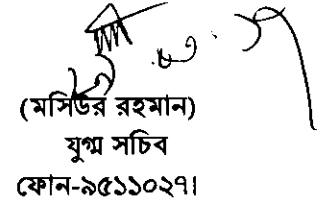 (মসিউর রহমান)
যুগ্ম সচিব
ফোন-৯৫১১০২৭।